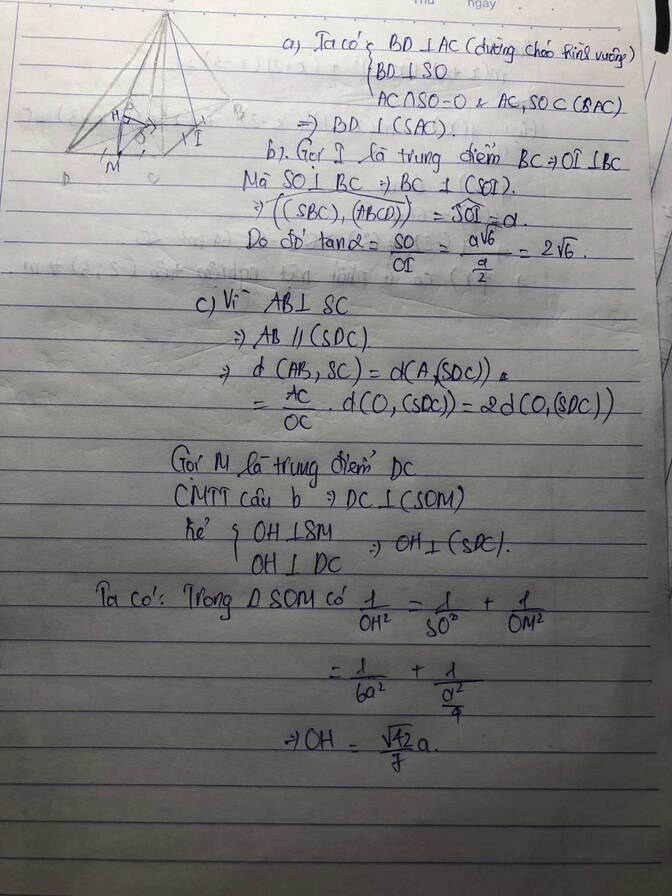 ngày
a) Ta có { BD ⊥ AC (đường chéo hình vuông)
BD ⊥ SO
AC ∩ SO = O & AC, SO ⊂ (SAC)
⇒ BD ⊥ (SAC).
b). Gọi I là trung điểm BC ⇒ OI ⊥ BC
Mà SO ⊥ BC ⇒ BC ⊥ (SOI).
⇒ ((SBC), (ABCD)) = SOI = α.
Do đó tan α = SO/OI = a√6/(a/2) = 2√6.
c) Vì AB ⊥ SC
⇒ AB // (SDC)
⇒ d(AB, SC) = d(A, (SDC))
= AC/OC . d(O, (SDC)) = 2d(O, (SDC))
Gọi M là trung điểm DC
CMTT câu b ⇒ DC ⊥ (SOM)
Kẻ { OH ⊥ SM
OH ⊥ DC ⇒ OH ⊥ (SDC).
Ta có: Trong Δ SOM có 1/OH² = 1/SO² + 1/OM²
= 1/6a² + 1/(a²/4)
⇒ OH = √42/7 a.
H
B
O
I
D
M
C